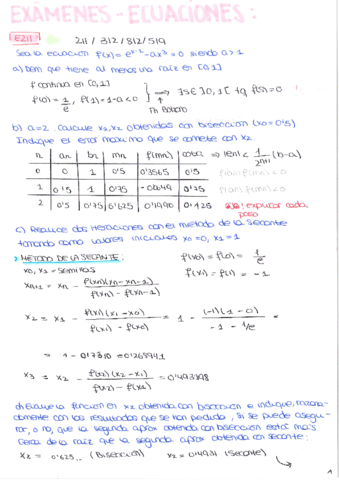 EXÁMENES - ECUACIONES:
E211 211 / 312 / 812 / 519
Sea la ecuación f(x) = e^x-2 - ax³ = 0 siendo a > 1
a) Dem que tiene al menos una raíz en [0,1]
f continua en [0,1]
f(0) = 1/e , f(1) = 1-a < 0 } ⟹ ∃ s ∈ ]0,1[ tq f(s) = 0
Th Bolzano
b) a=2. Calcule x1, x2 obtenidas con bisección (x0 = 0'5)
Indique el error máximo que se comete con x2.
n an bn mn f(mn) cota ⟹ |en| < 1/2^n+1 (b-a)
0 0 1 0'5 0'3565 0'5
1 0'5 1 0'75 -0'0649 0'25
2 0'5 0'75 0'625 0'1990 0'125 explicar cada paso
c) Realice dos iteraciones con el método de la secante
tomando como valores iniciales x0 = 0, x1 = 1
MÉTODO DE LA SECANTE:
f(x0) = f(0) = 1/e
x0, x1 - semillas
f(x1) = f(1) = -1
xn+1 = xn - f(xn)(xn - xn-1) / f(xn) - f(xn-1)
x2 = x1 - f(x1)(x1 - x0) / f(x1) - f(x0) = 1 - (-1)(1-0) / -1 - 1/e =
= 1 - 0'7310 = 0'268941
x3 = x2 - f(x2)(x2 - x1) / f(x2) - f(x1) = 0'493198
d) Evalúe la función en x2 obtenida con bisección e indique, razonadamente
con los resultados que se han pedido, si se puede asegurar,
o no, que la segunda aprox obtenida con bisección está más
cerca de la raíz que la segunda aprox obtenida con secante:
x2 = 0'625... (Bisección) x2 = 0'4931 (Secante)
1